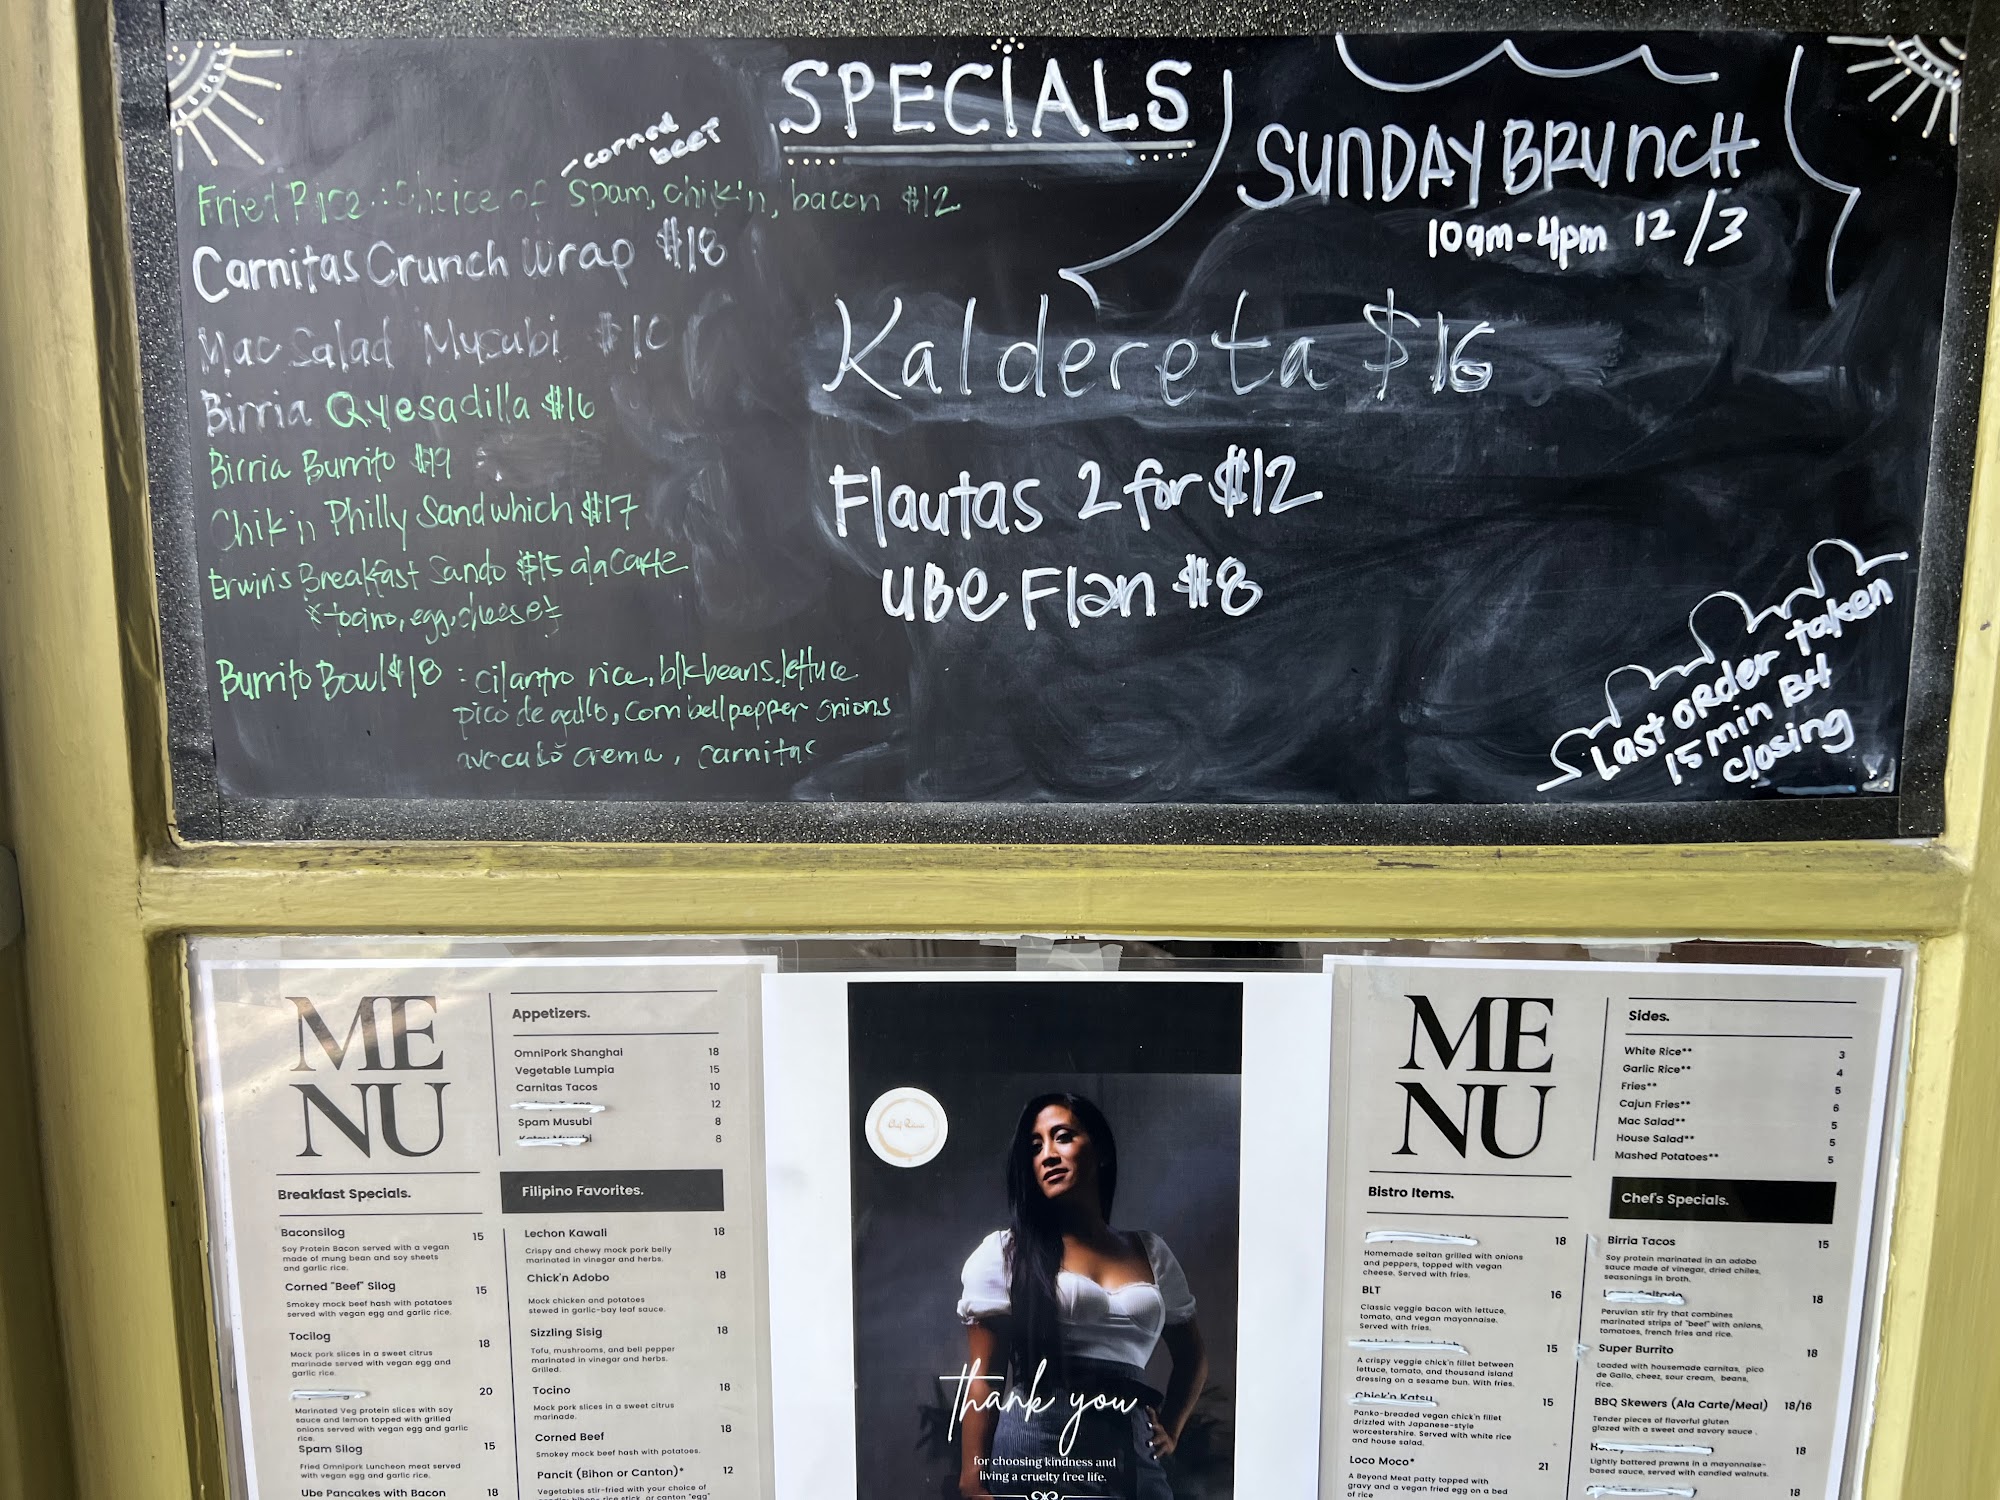 SPECIALS
corned
beef
Fried Rice: Choice of Spam, chik'n, bacon $12
Carnitas Crunch Wrap $18
Mac Salad Musubi $10
Birria Quesadilla $16
Birria Burrito $19
Chik'n Philly Sandwhich $17
Erwin's Breakfast Sando $15 ala Carte
*tocino, egg, cheese*
Burrito Bowl $18 : cilantro rice, blk beans, lettuce
pico de gallo, corn bell pepper onions
avocado crema, carnitas
SUNDAY BRUNCH
10am-4pm 12/3
Kaldereta $16
Flautas 2 for $12
UBE Flan $8
Last order taken
15 min B4
closing
ME
NU
Appetizers.
OmniPork Shanghai 18
Vegetable Lumpia 15
Carnitas Tacos 10
12
Spam Musubi 8
Katsu Musubi 8
Breakfast Specials.
Baconsilog 15
Soy Protein Bacon served with a vegan
made of mung bean and soy sheets
and garlic rice.
Corned "Beef" Silog 15
Smokey mock beef hash with potatoes
served with vegan egg and garlic rice.
Tocilog 18
Mock pork slices in a sweet citrus
marinade served with vegan egg and
garlic rice.
20
Marinated Veg protein slices with soy
sauce and lemon topped with grilled
onions served with vegan egg and garlic
rice.
Spam Silog 15
Fried Omnipork Luncheon meat served
with vegan egg and garlic rice.
Ube Pancakes with Bacon 18
Filipino Favorites.
Lechon Kawali 18
Crispy and chewy mock pork belly
marinated in vinegar and herbs.
Chick'n Adobo 18
Mock chicken and potatoes
stewed in garlic-bay leaf sauce.
Sizzling Sisig 18
Tofu, mushrooms, and bell pepper
marinated in vinegar and herbs.
Grilled.
Tocino 18
Mock pork slices in a sweet citrus
marinade.
Corned Beef 18
Smokey mock beef hash with potatoes.
Pancit (Bihon or Canton)* 12
Vegetables stir-fried with your choice of
thank you
for choosing kindness and
living a cruelty free life.
ME
NU
Sides.
White Rice** 3
Garlic Rice** 4
Fries** 5
Cajun Fries** 6
Mac Salad** 5
House Salad** 5
Mashed Potatoes** 5
Bistro Items.
18
Homemade seitan grilled with onions
and peppers, topped with vegan
cheese. Served with fries.
BLT 16
Classic veggie bacon with lettuce,
tomato, and vegan mayonnaise.
Served with fries.
15
A crispy veggie chick'n fillet between
lettuce, tomato, and thousand island
dressing on a sesame bun. With fries.
Chick'n Katsu 15
Panko-breaded vegan chick'n fillet
drizzled with Japanese-style
worcestershire. Served with white rice
and house salad.
Loco Moco* 21
A Beyond Meat patty topped with
gravy and a vegan fried egg on a bed
of rice
Chef's Specials.
Birria Tacos 15
Soy protein marinated in an adobo
sauce made of vinegar, dried chiles,
seasonings in broth.
18
Peruvian stir fry that combines
marinated strips of "beef" with onions,
tomatoes, french fries and rice.
Super Burrito 18
Loaded with housemade carnitas, pico
de Gallo, cheez, sour cream, beans,
rice.
BBQ Skewers (Ala Carte/Meal) 18/16
Tender pieces of flavorful gluten
glazed with a sweet and savory sauce.
18
Lightly battered prawns in a mayonnaise-
based sauce, served with candied walnuts.
18